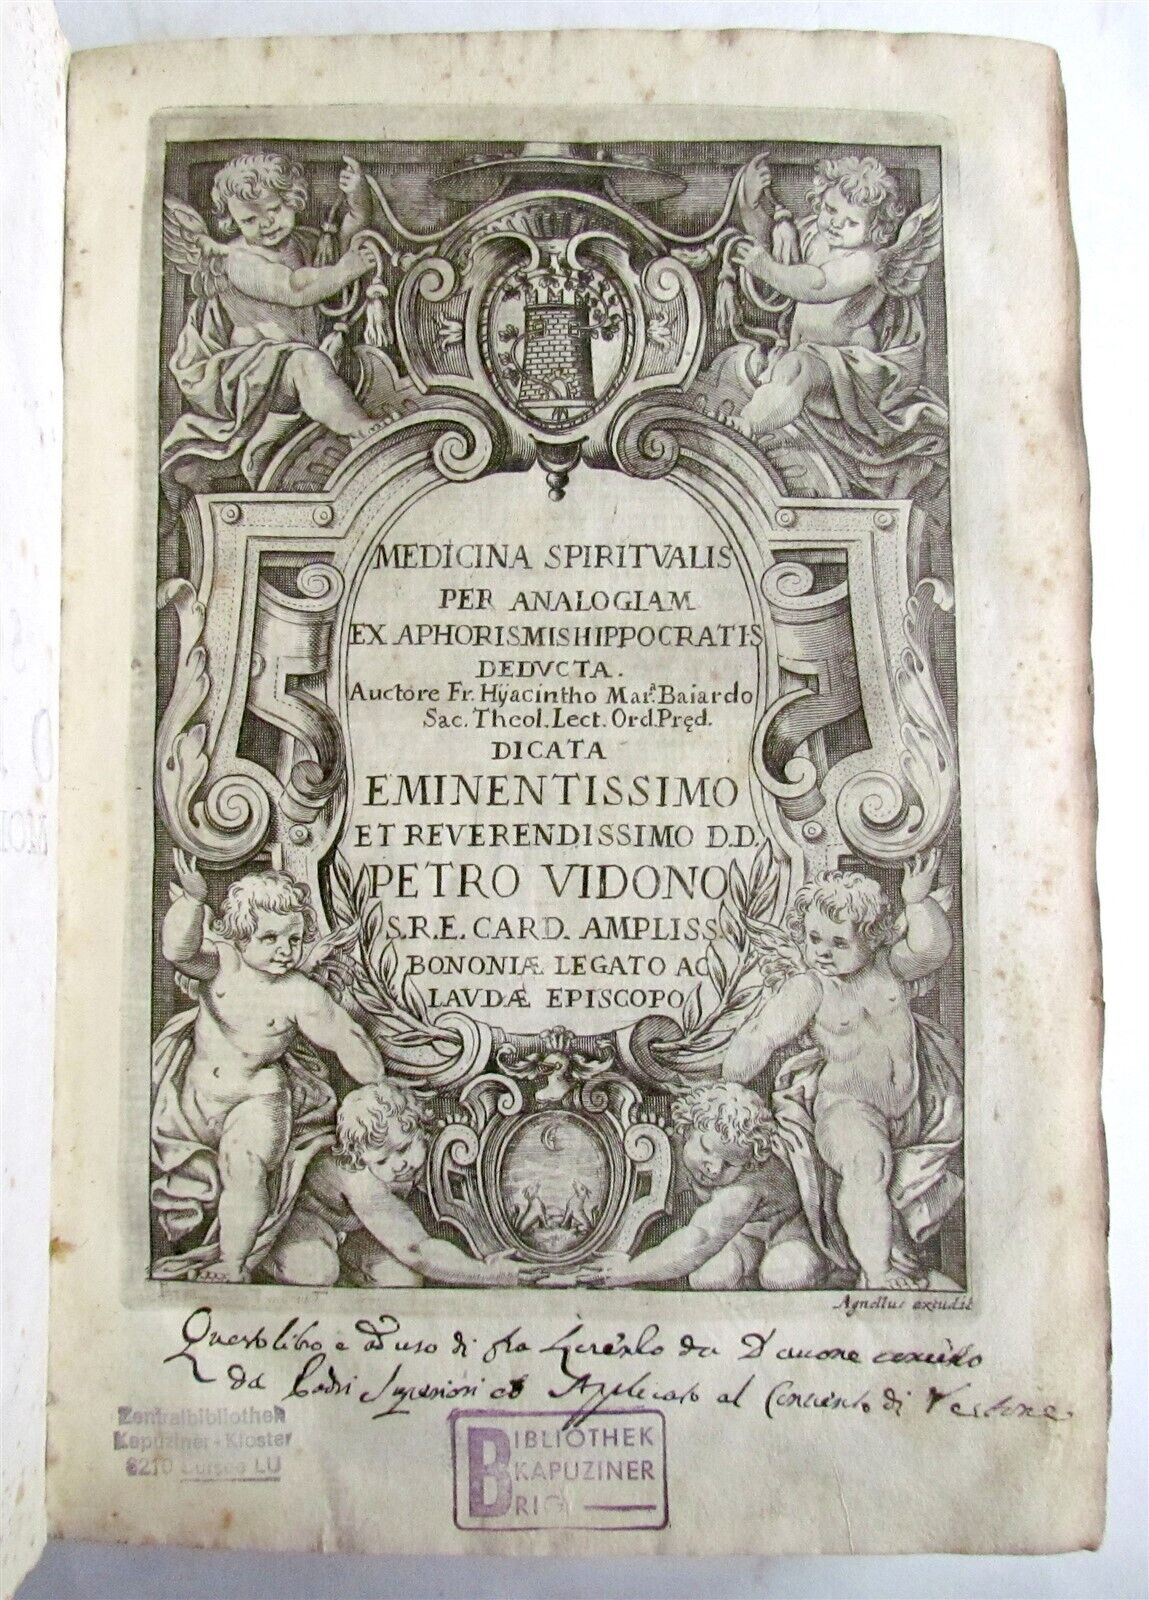 MEDICINA SPIRITVALIS
PER ANALOGIAM
EX APHORISMIS HIPPOCRATIS
DEDVCTA.
Auctore Fr. Hÿacintho Mar.ª Baiardo
Sac. Theol. Lect. Ord. Pręd.
DICATA
EMINENTISSIMO
ET REVERENDISSIMO D.D.
PETRO VIDONO
S.R.E. CARD. AMPLISS.
BONONIÆ LEGATO AC
LAVDÆ EPISCOPO
Agnellus excudit
Questo libro è ad uso di fra da
da Superiori et Applicato al Convento di
Zentralbibliothek
Kapuziner-Kloster
6210 Sursee LU
BIBLIOTHEK
KAPUZINER
BRIG